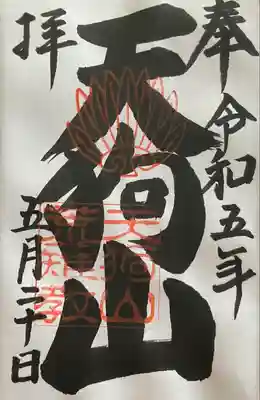 奉
令和五年
天狗山
拝
五月二十日